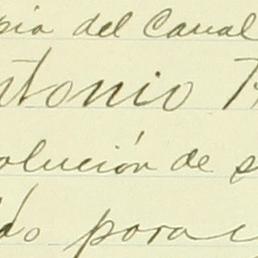 pia del Canal
ntonio
olución de s
do para